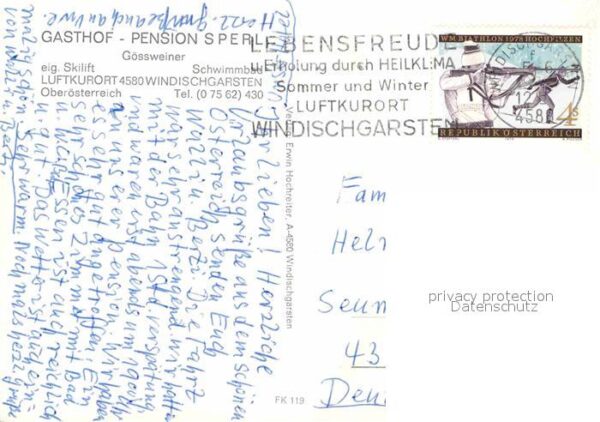 GASTHOF - PENSION SPERL
Gössweiner
eig. Skilift Schwimmbad
LUFTKURORT 4580 WINDISCHGARSTEN
Oberösterreich Tel. (0 75 62) 430
LEBENSFREUDE
u. Erholung durch HEILKLIMA
Sommer und Winter
LUFTKURORT
WINDISCHGARSTEN
4580
WM BIATHLON 1978 HOCHFILZEN
4S
REPUBLIK ÖSTERREICH
Ihr Lieben! Herzliche
Urlaubsgrüße aus dem schönen
Österreich senden Euch
u. Betzi. Die Fahrt
war sehr anstrengend wir hatten
mit der Bahn 1 Std. Verspätung
und waren erst abends um 19 00 Uhr
in unserer Pension. Wir haben
es sehr gut angetroffen. Ein
sehr schönes Zimmer mit Bad
Essen ist auch reichlich
u. gut. Das Wetter ist auch einmalig
schön, sehr warm. Nochmals herzl. Grüße
von u. Betzi.
Herzl. Grüße auch an
Verlag Erwin Hochreiter, A-4580 Windischgarsten
FK 119
Fam
Heln
Seun
43
Deu
privacy protection
Datenschutz